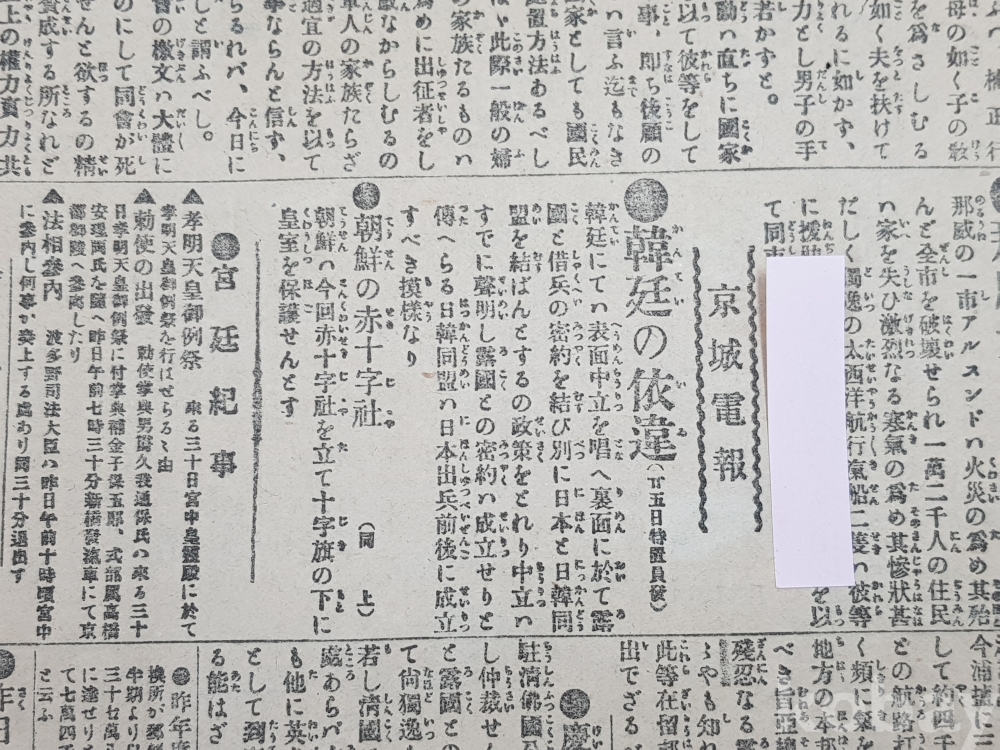 母の如く子の敎
を爲さしむる
如く夫を扶けて
れるに如かず、
力とし男子の手
若かずと。
動ハ直ちに國家
を以て彼等をして
事、即ち後顧の
ハ言ふ迄もなき
家としても國民
處置方法あるべし
此際一般の婦
の家族たるものハ
めに出征者をし
なからしむるの
軍人の家族たらざ
適宜の方法を以て
事ならんと信ず、
らるれバ、今日に
しと謂ふべし。
會の檄文ハ大體に
のにして同會が死
せんと欲するの精
賛成する所なれど
上の權力實力共
那威の一市アルスンドハ火災の爲め其殆
んど全市を破壞せられ一萬二千人の住民
ハ家を失ひ激烈なる寒氣の爲め其慘狀甚
だしく獨逸の太西洋航行氣船二隻ハ彼等
に
を以
て同
京城電報
●韓廷の依違(廿五日特置員發)
韓廷にてハ表面中立を唱へ裏面に於て露
國と借兵の密約を結び別に日本と日韓同
盟を結ばんとするの政策をとれり中立ハ
すでに聲明し露國との密約ハ成立せりと
傳へらる日韓同盟ハ日本出兵前後に成立
すべき摸樣なり
●朝鮮の赤十字社(同上)
朝鮮ハ今回赤十字社を立て十字旗の下に
皇室を保護せんとす
●宮廷紀事
▲孝明天皇御例祭 來る三十日宮中皇靈殿に於て
孝明天皇御例祭を行はせらるゝ由
▲勅使の出發 勅使掌典男爵久我通保氏ハ來る三十
日孝明天皇御例祭に付掌典補金子保五郎、式部屬高橋
安理兩氏を隨へ昨日午前七時三十分新橋發滊車にて京
都御陵へ參向したり
▲法相參内 波多野司法大臣ハ昨日午前十時頃宮中
に參内し何事か奏上する處あり同三十分退出す
今浦
して約四千
どの航路
く頻に
地方の本
べき旨
殘忍なる
ゝやも知
此等在留
出でざる
●慶
駐淸佛國
し仲裁せ
と露國との
て尙獨逸
若し淸國
處あらバ
も他に英
として到
る能はざ
●昨年度
換所が
半期より
三十七萬
に達せり
て七萬四
と云ふ
●昨日